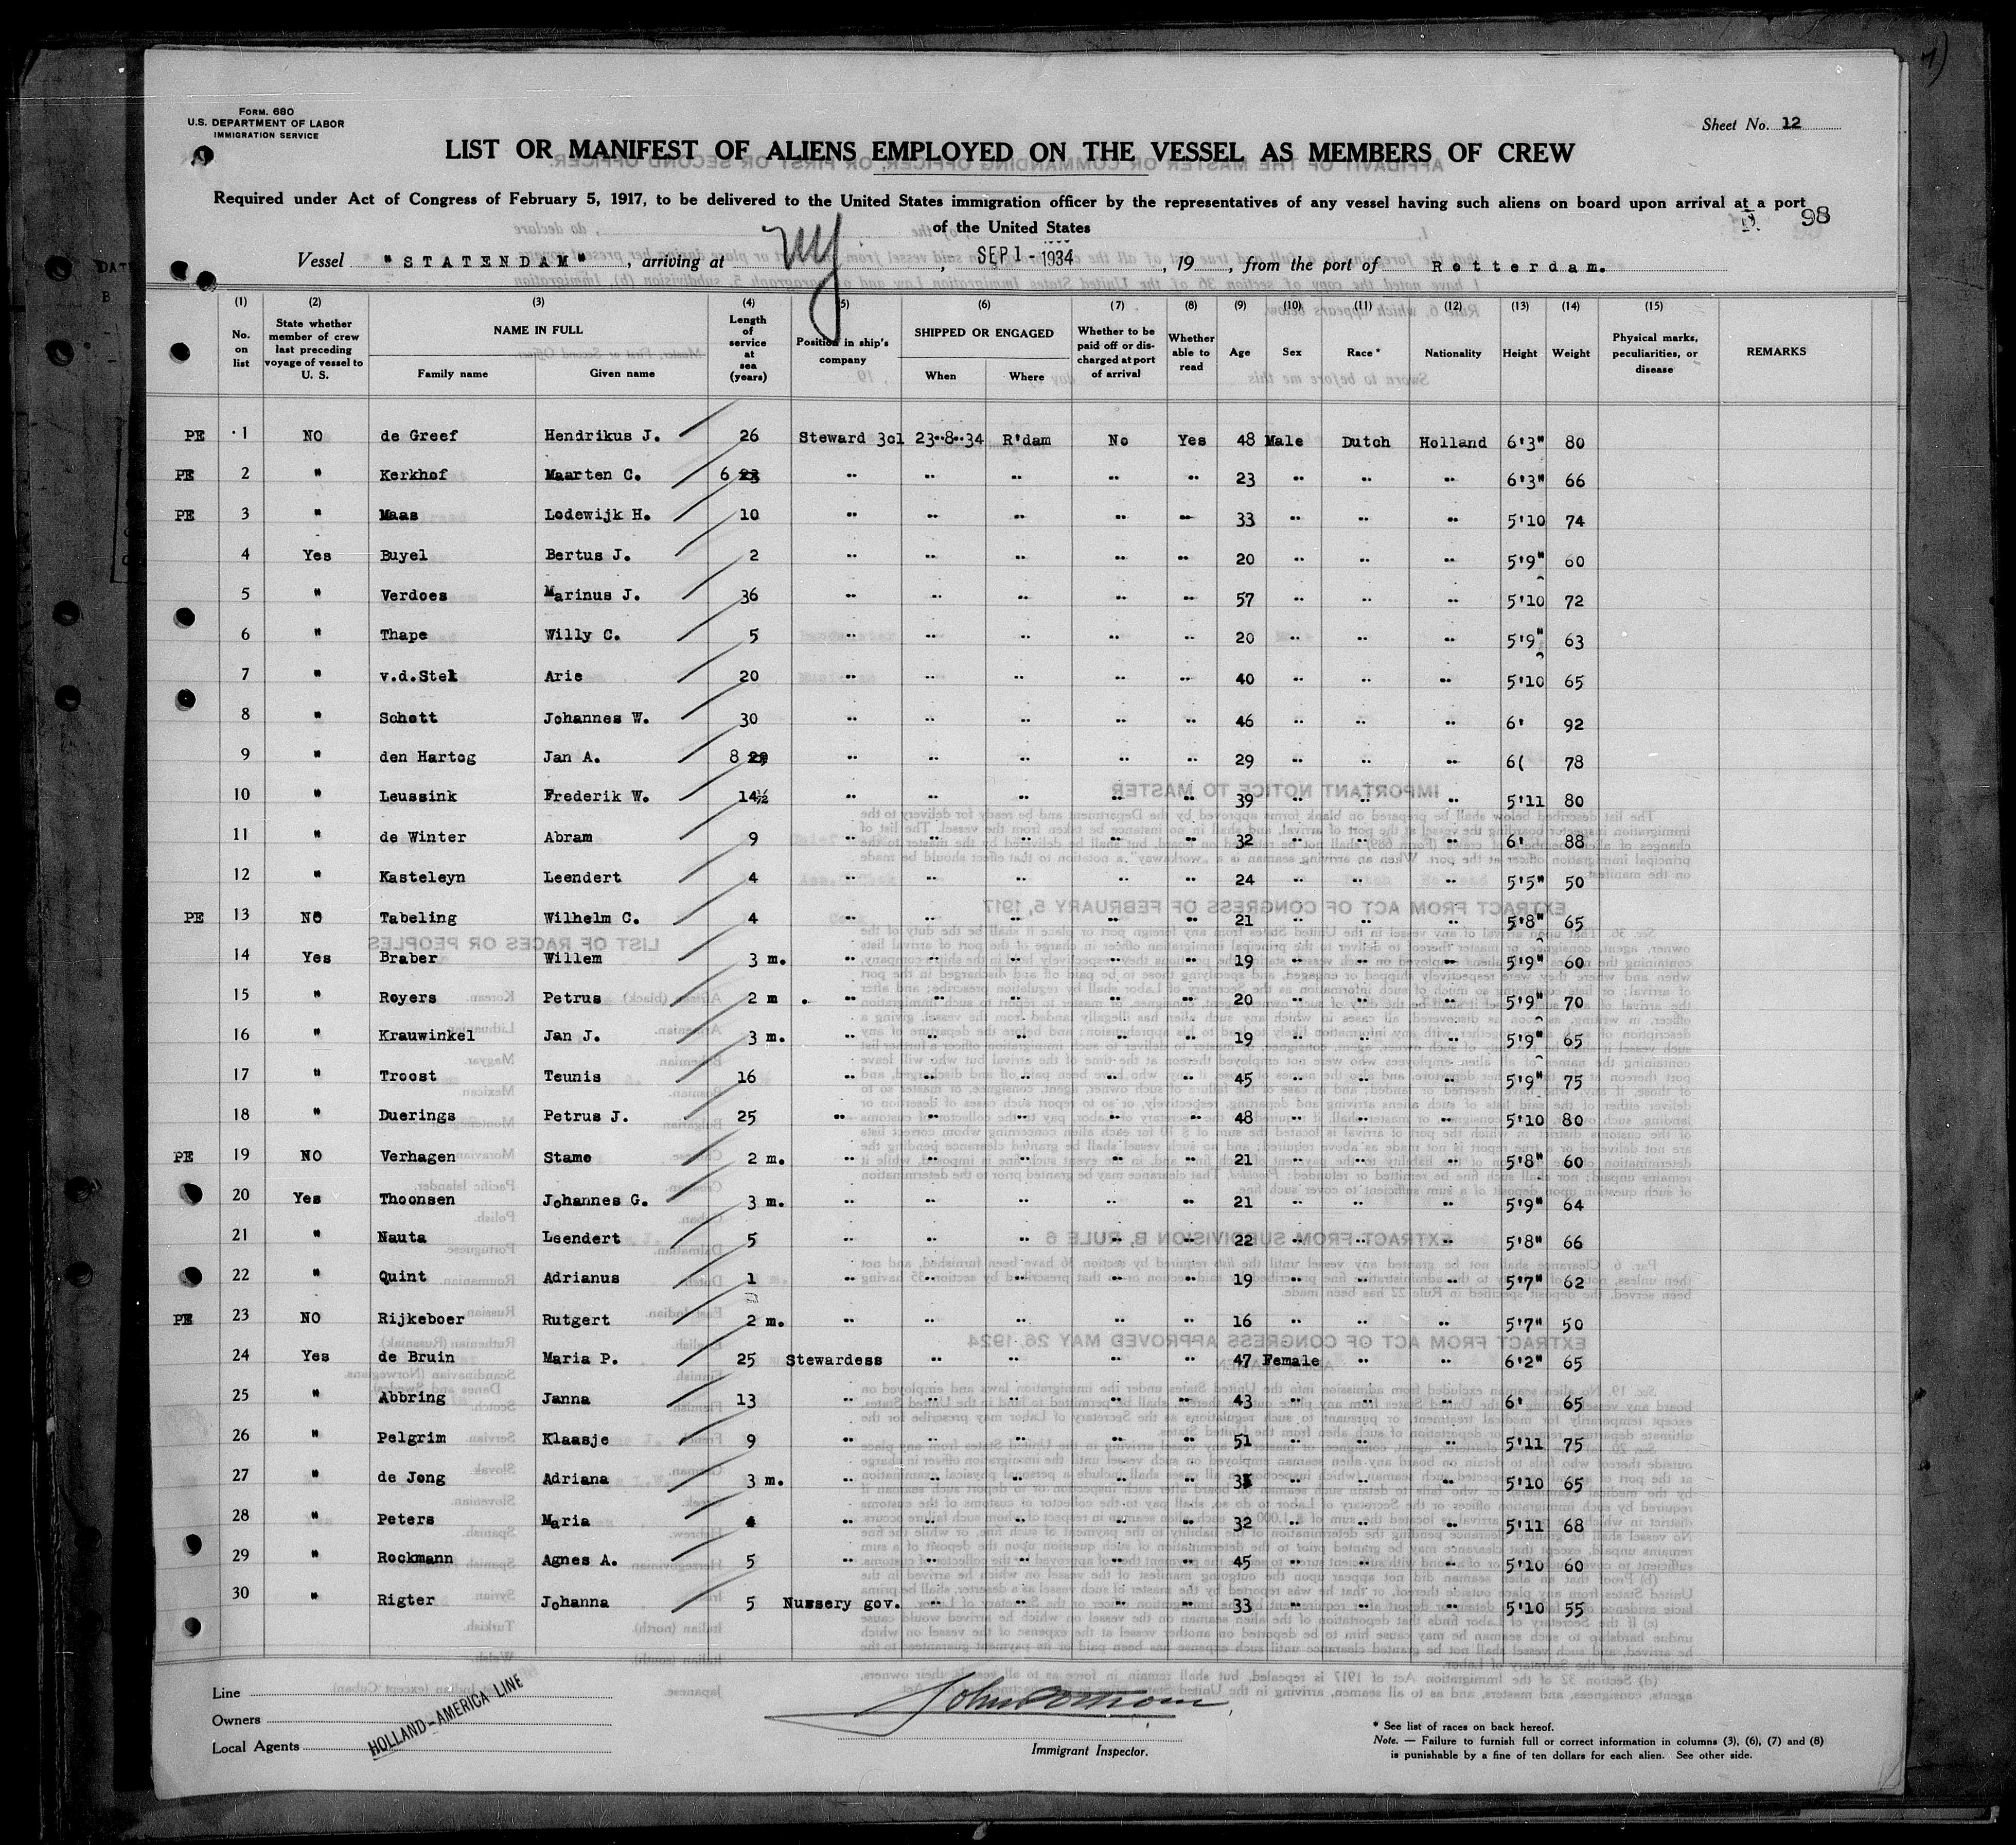 FORM. 680
U.S. DEPARTMENT OF LABOR
IMMIGRATION SERVICE
Sheet No. 12
LIST OR MANIFEST OF ALIENS EMPLOYED ON THE VESSEL AS MEMBERS OF CREW
Required under Act of Congress of February 5, 1917, to be delivered to the United States immigration officer by the representatives of any vessel having such aliens on board upon arrival at a port
of the United States
98
Vessel "STATENDAM", arriving at NY, SEP 1 - 1934, 19, from the port of Rotterdam.
(1) (2) (3) (4) (5) (6) (7) (8) (9) (10) (11) (12) (13) (14) (15)
No. on list | State whether member of crew last preceding voyage of vessel to U. S. | NAME IN FULL Family name Given name | Length of service at sea (years) | Position in ship's company | SHIPPED OR ENGAGED When Where | Whether to be paid off or discharged at port of arrival | Whether able to read | Age | Sex | Race* | Nationality | Height | Weight | Physical marks, peculiarities, or disease | REMARKS
PE 1 NO de Greef Hendrikus J. 26 Steward 3cl 23-8-34 R'dam No Yes 48 Male Dutch Holland 6'3" 80
PE 2 " Kerkhof Maarten C. 6 23 " " " " " 23 " " " 6'3" 66
PE 3 " Maas Lodewijk H. 10 " " " " " 33 " " " 5'10 74
4 Yes Buyel Bertus J. 2 " " " " " 20 " " " 5'9" 60
5 " Verdoes Marinus J. 36 " " " " " 57 " " " 5'10 72
6 " Thape Willy C. 5 " " " " " 20 " " " 5'9" 63
7 " v.d.Stek Arie 20 " " " " " 40 " " " 5'10 65
8 " Schott Johannes W. 30 " " " " " 46 " " " 6' 92
9 " den Hartog Jan A. 8 29 " " " " " 29 " " " 6( 78
10 " Leussink Frederik W. 14½ " " " " " 39 " " " 5'11 80
11 " de Winter Abram 9 " " " " " 32 " " " 6' 88
12 " Kasteleyn Leendert 4 " " " " " 24 " " " 5'5" 50
PE 13 NO Tabeling Wilhelm C. 4 " " " " " 21 " " " 5'8" 65
14 Yes Braber Willem 3 m. " " " " " 19 " " " 5'9" 60
15 " Royers Petrus 2 m . " " " " " 20 " " " 5'9" 70
16 " Krauwinkel Jan J. 3 m. " " " " " 19 " " " 5'9" 65
17 " Troost Teunis 16 " " " " " 45 " " " 5'9" 75
18 " Duerings Petrus J. 25 " " " " " 48 " " " 5'10 80
PE 19 NO Verhagen Stamo 2 m. " " " " " 21 " " " 5'8" 60
20 Yes Thoonsen Johannes G. 3 m. " " " " " 21 " " " 5'9" 64
21 " Nauta Leendert 5 " " " " " 22 " " " 5'8" 66
22 " Quint Adrianus 1 " " " " " 19 " " " 5'7" 62
PE 23 NO Rijkeboer Rutgert 2 m. " " " " " 16 " " " 5'7" 50
24 Yes de Bruin Maria P. 25 Stewardess " " " " 47 Female " " 6'2" 65
25 " Abbring Janna 13 " " " " " 43 " " " 6' 65
26 " Pelgrim Klaasje 9 " " " " " 51 " " " 5'11 75
27 " de Jong Adriana 3 m. " " " " " " " " 5'10 65
28 " Peters Maria 4 " " " " " 32 " " " 5'11 68
29 " Rockmann Agnes A. 5 " " " " " 45 " " " 5'10 60
30 " Rigter Johanna 5 Nursery gov. " " " " 33 " " " 5'10 55
Line
Owners
Local Agents
HOLLAND-AMERICA LINE
Immigrant Inspector.
* See list of races on back hereof.
Note. — Failure to furnish full or correct information in columns (3), (6), (7) and (8)
is punishable by a fine of ten dollars for each alien. See other side.